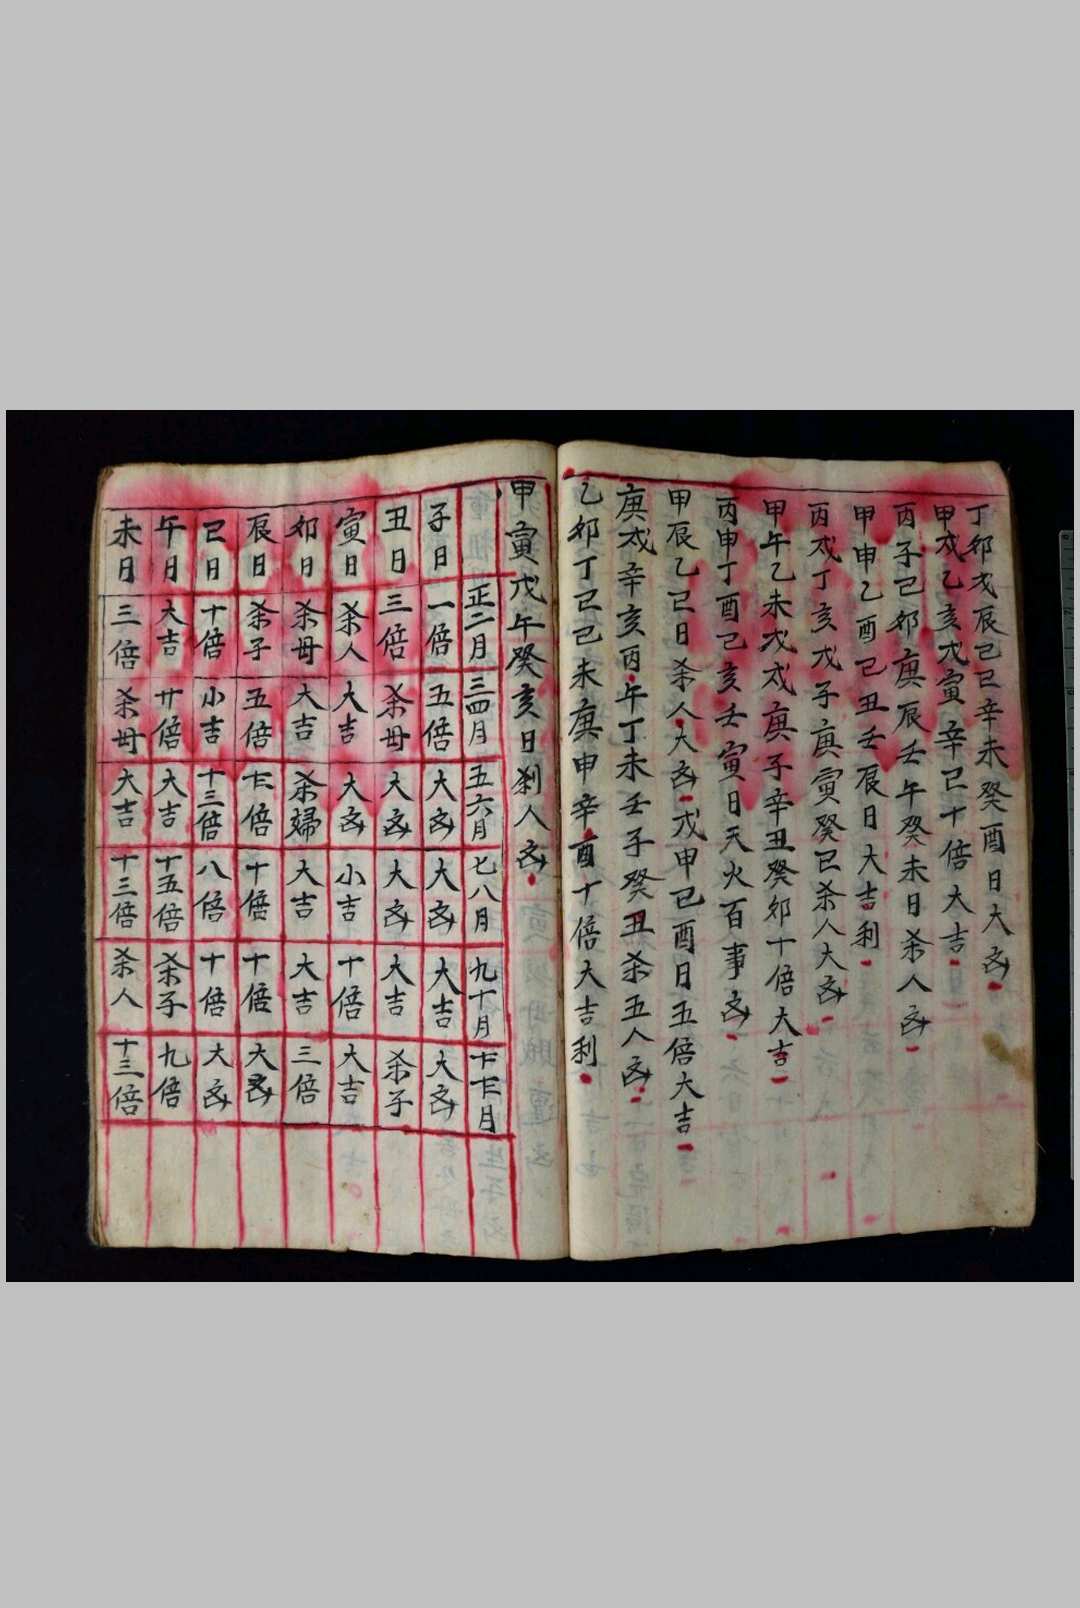 丁卯戊辰己巳辛未癸酉日大㐫
甲戌乙亥戊寅辛巳十倍大吉
丙子己卯庚辰壬午癸未日杀人㐫
甲申乙酉己丑壬辰日大吉利
丙戌丁亥戊子庚寅癸巳杀人大㐫
甲午乙未戊戌庚子辛丑癸卯十倍大吉
丙申丁酉己亥壬寅日天火百事㐫
甲辰乙巳日杀人大㐫戊申己酉日五倍大吉
庚戌辛亥丙午丁未壬子癸丑杀五人㐫
乙卯丁巳己未庚申辛酉十倍大吉利
甲寅戊午癸亥日刹人㐫
正二月 三四月 五六月 七八月 九十月 十一十二月
子日 一倍 五倍 大㐫 大㐫 大吉 大㐫
丑日 三倍 杀母 大㐫 大㐫 大吉 杀子
寅日 杀人 大吉 大㐫 小吉 十倍 大吉
卯日 杀母 大吉 杀婦 大吉 大吉 三倍
辰日 杀子 五倍 十二倍 十倍 十倍 大㐫
巳日 十倍 小吉 十三倍 八倍 十倍 大㐫
午日 大吉 廿倍 大吉 十五倍 杀子 九倍
未日 三倍 杀母 大吉 十三倍 杀人 十三倍